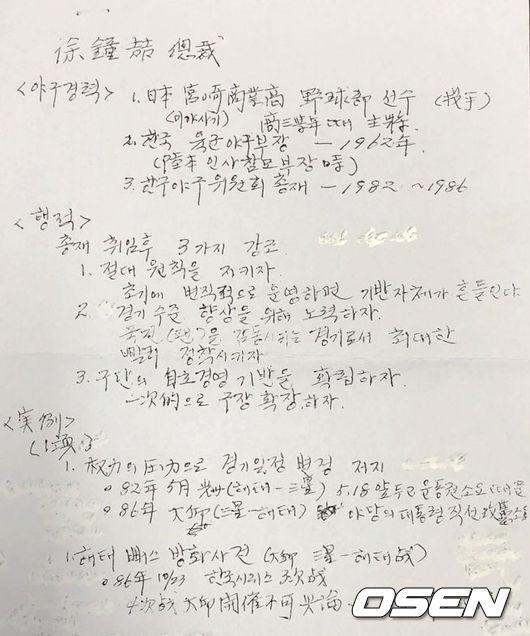 徐鐘喆 總裁
<야구경력>
1. 日本 宮崎商業高 野球部 선수 (投手)
(미야사키) 商三學年 때 主將
2. 한국 육군야구부장 - 1962年.
(陸本 인사참모부장 時)
3. 한국야구위원회 총재 - 1982 ~1986
<행적>
총재 취임후 3가지 강조.
1. 절대 원칙을 지키자.
초기에 변칙적으로 운영하면 기반자체가 흔들린다.
2. 경기 수준 향상을 위해 노력하자.
국민(팬)을 감동시키는 경기로서 최대한
빨리 정착시키자
3. 구단의 自立경영 기반을 확립하자.
一次的으로 구장 확장하자.
<実例>
1. 权力의 压力으로 경기일정 변경 저지
○ 82年 5月 光州(해태-三星) 5.18 앞두고 운동권소요 때문
○ 86年 大邱(三星-해태) 야당의 대통령 직선
1. 해태 뻐스 방화사건 (大邱 三星-해태战)
○ 86年 10/23 한국시리즈 3次战
4次战 大邱 開催不可 论
OSEN